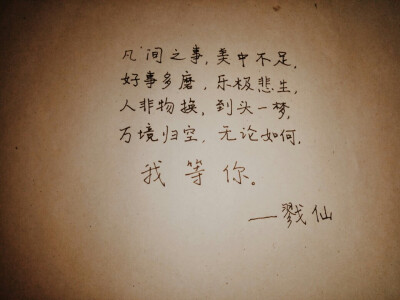 凡间之事,美中不足,
好事多磨,乐极悲生,
人非物换,到头一梦,
万境归空,无论如何,
我等你。
—戮仙